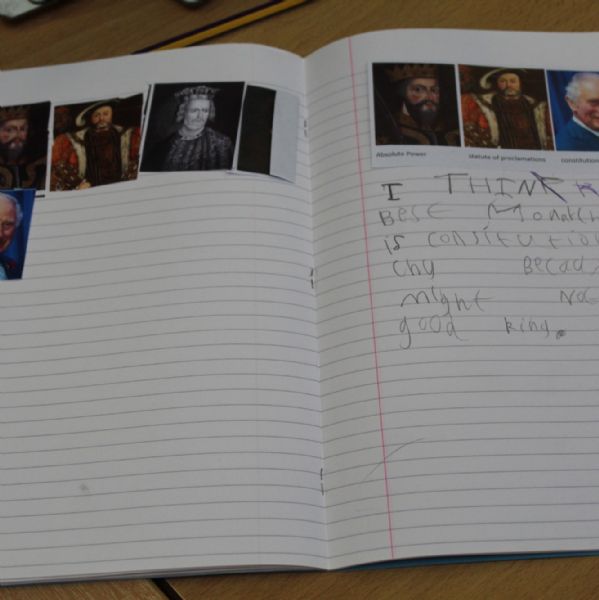 Absolute Power statute of proclamations constitution
I THINK
Best Monatch
is consitution
chy Becau
might not
good king.